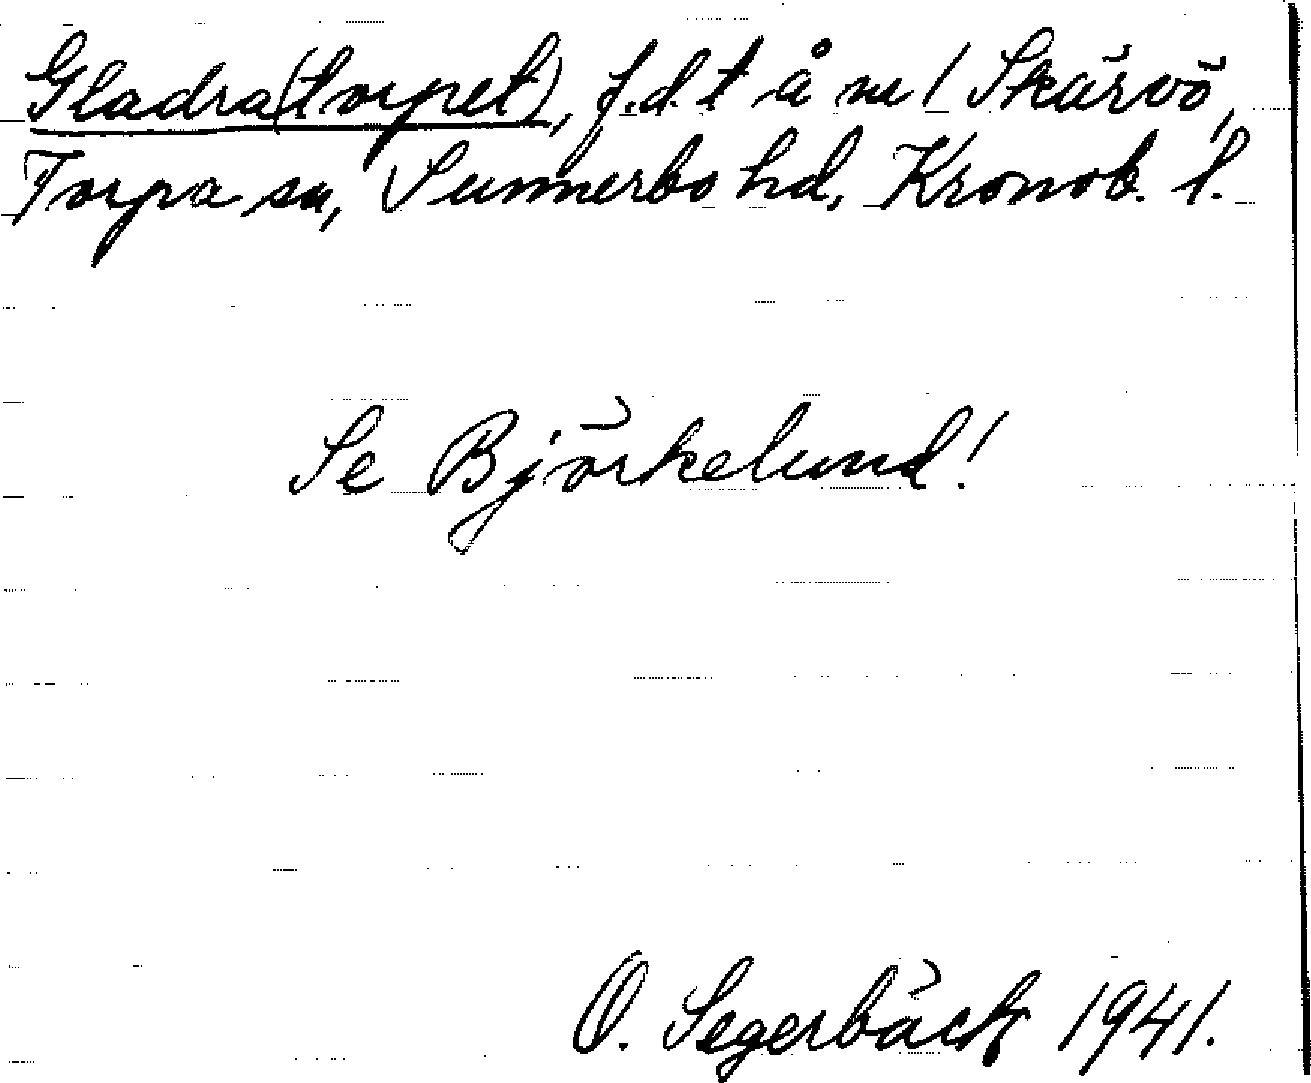 Gladra(torpet), f.d. t å nr 1 Skärvö,
Torpa sn, Sunnerbo hd, Kronob. l.
Se Björkelund!
O. Segerbäck 1941.